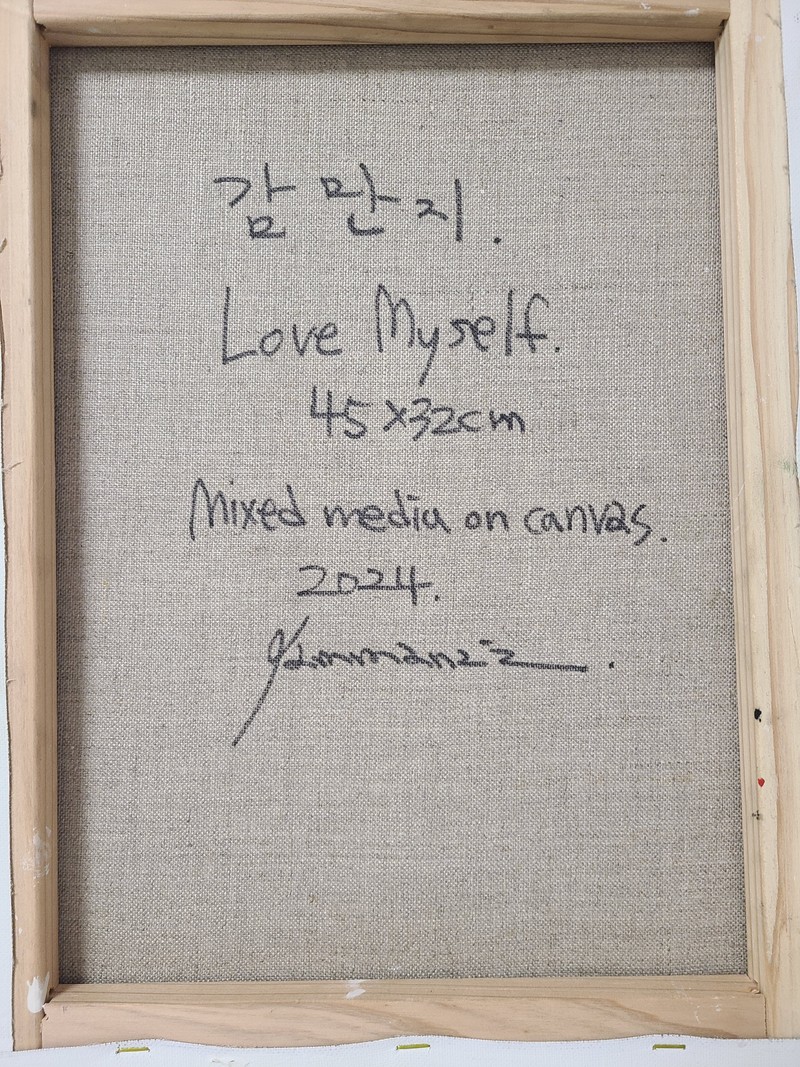 감만지.
Love Myself.
45x32cm
Mixed media on canvas.
2024.